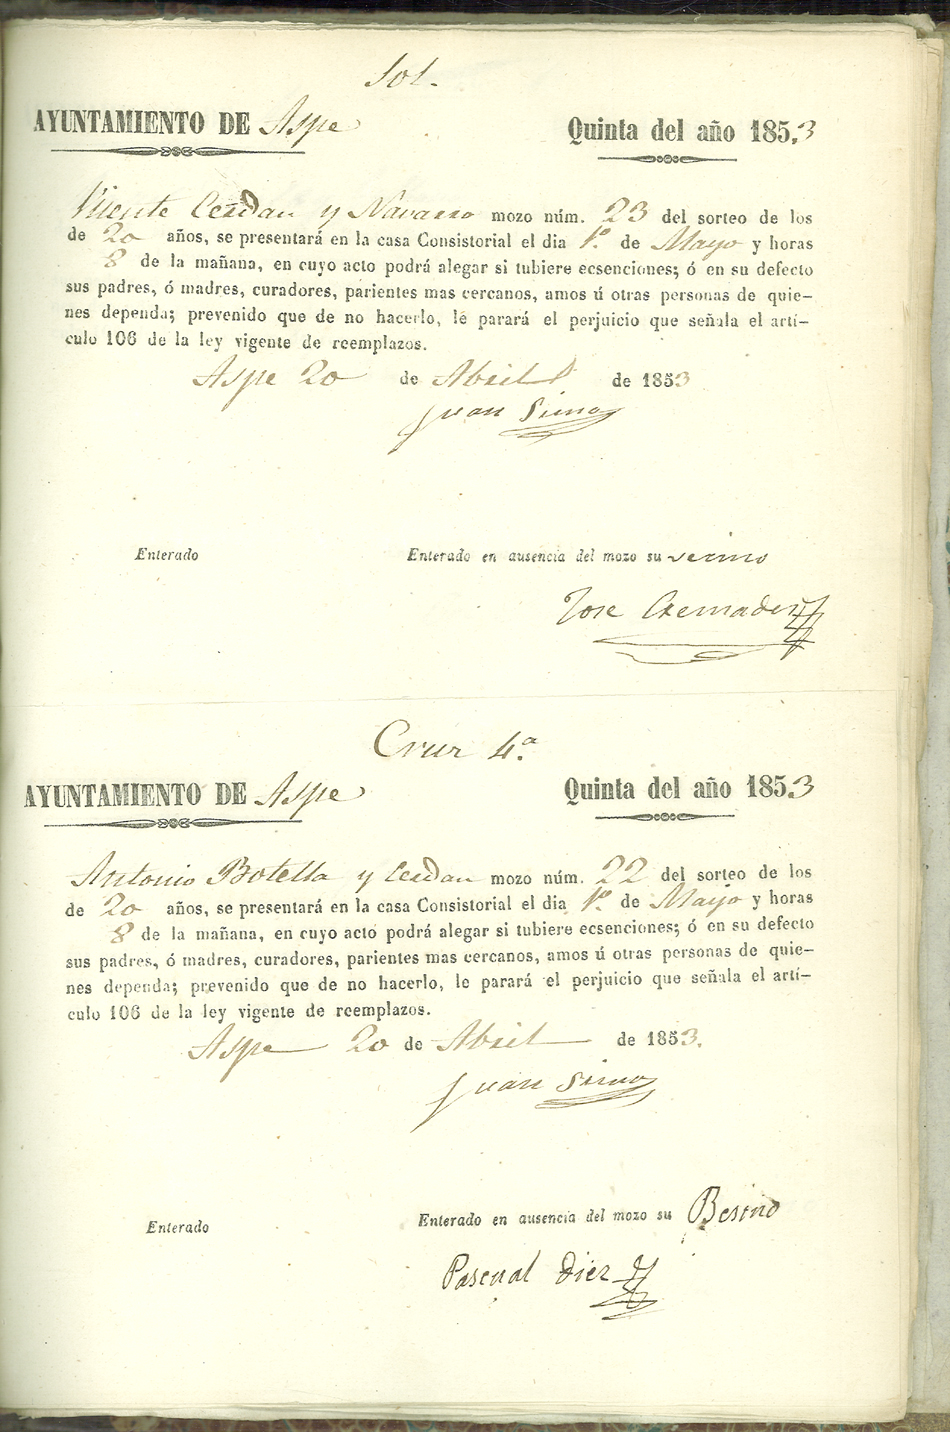 Sol.
AYUNTAMIENTO DE Aspe
Quinta del año 1853
Vicente Cerdan y Navarro mozo núm. 23 del sorteo de los
de 20 años, se presentará en la casa Consistorial el dia 1º. de Mayo y horas
8 de la mañana, en cuyo acto podrá alegar si tubiere ecsenciones; ó en su defecto
sus padres, ó madres, curadores, parientes mas cercanos, amos ú otras personas de quie-
nes dependa; prevenido que de no hacerlo, le parará el perjuicio que señala el artí-
culo 106 de la ley vigente de reemplazos.
Aspe 20 de Abril de 1853
Juan Simo
Enterado
Enterado en ausencia del mozo su vecino
Jose Cremades
Cruz 4.ª
AYUNTAMIENTO DE Aspe
Quinta del año 1853
Antonio Botella y Cerdan mozo núm. 22 del sorteo de los
de 20 años, se presentará en la casa Consistorial el dia 1º. de Mayo y horas
8 de la mañana, en cuyo acto podrá alegar si tubiere ecsenciones; ó en su defecto
sus padres, ó madres, curadores, parientes mas cercanos, amos ú otras personas de quie-
nes dependa; prevenido que de no hacerlo, le parará el perjuicio que señala el artí-
culo 106 de la ley vigente de reemplazos.
Aspe 20 de Abril de 1853.
Juan Simo
Enterado
Enterado en ausencia del mozo su Besino
Pascual Diez